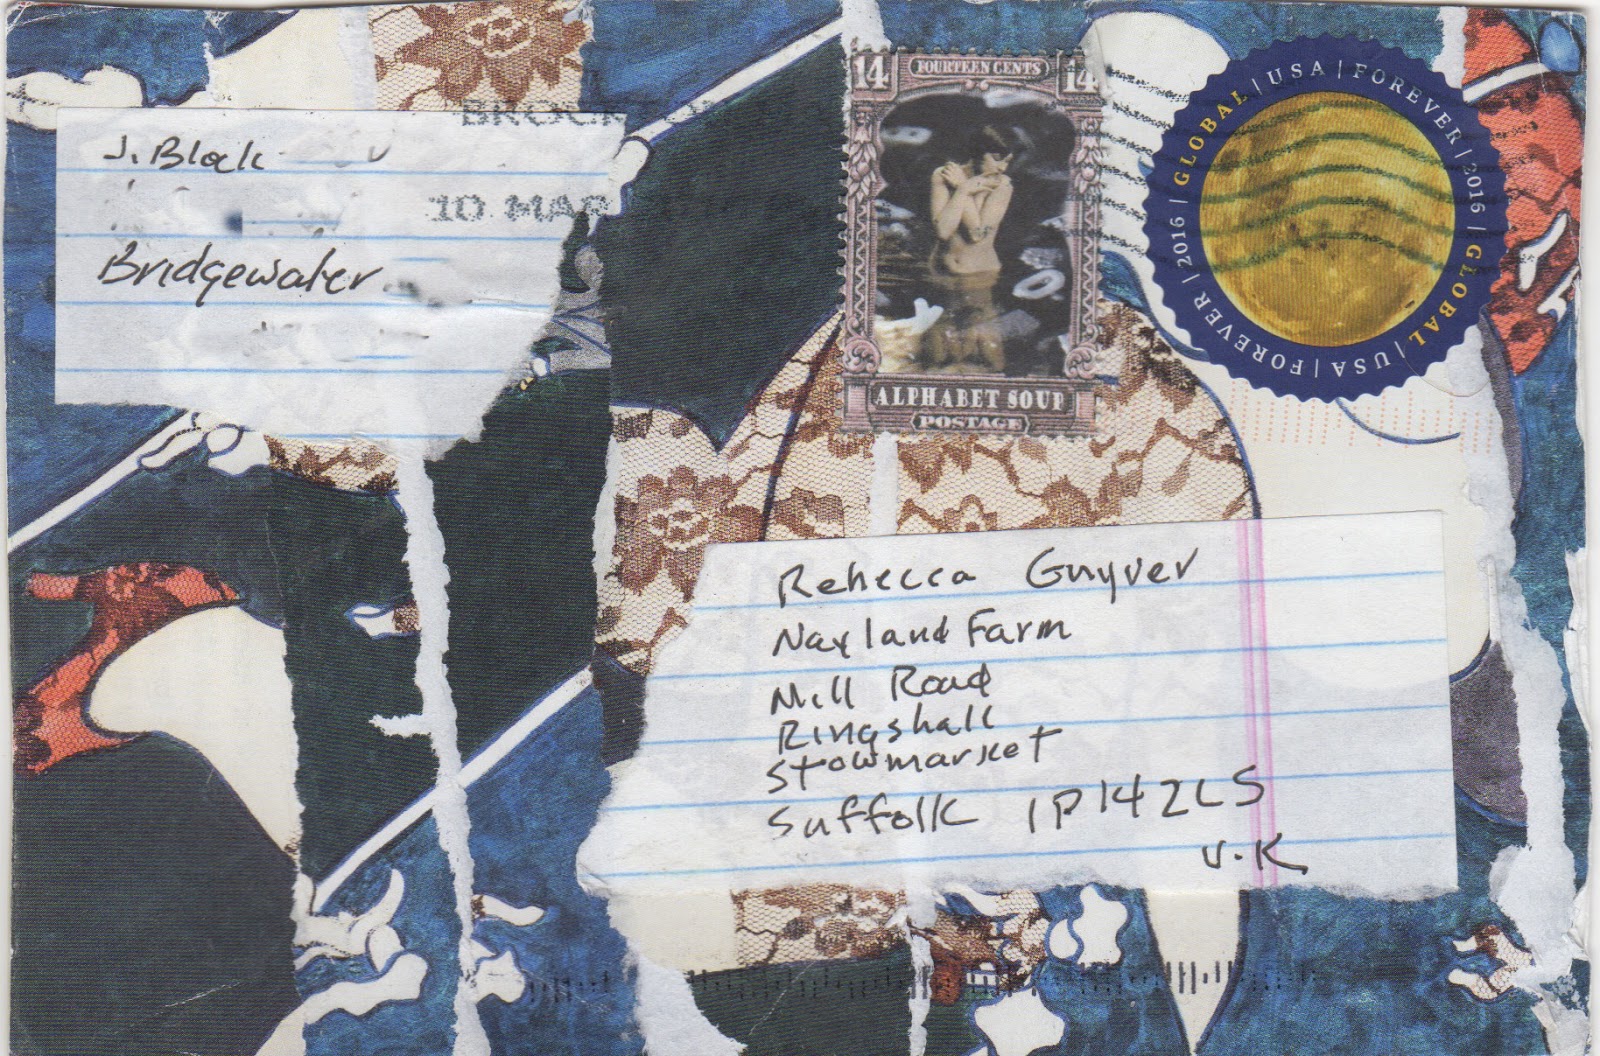 J. Block
Bridgewater
BROCK
10 MAR
14 FOURTEEN CENTS 14
ALPHABET SOUP
POSTAGE
GLOBAL | USA | FOREVER | 2016 | GLOBAL | USA | FOREVER | 2016 |
Rebecca Guyver
Nayland Farm
Mill Road
Ringshall
Stowmarket
Suffolk IP14 2LS
U.K